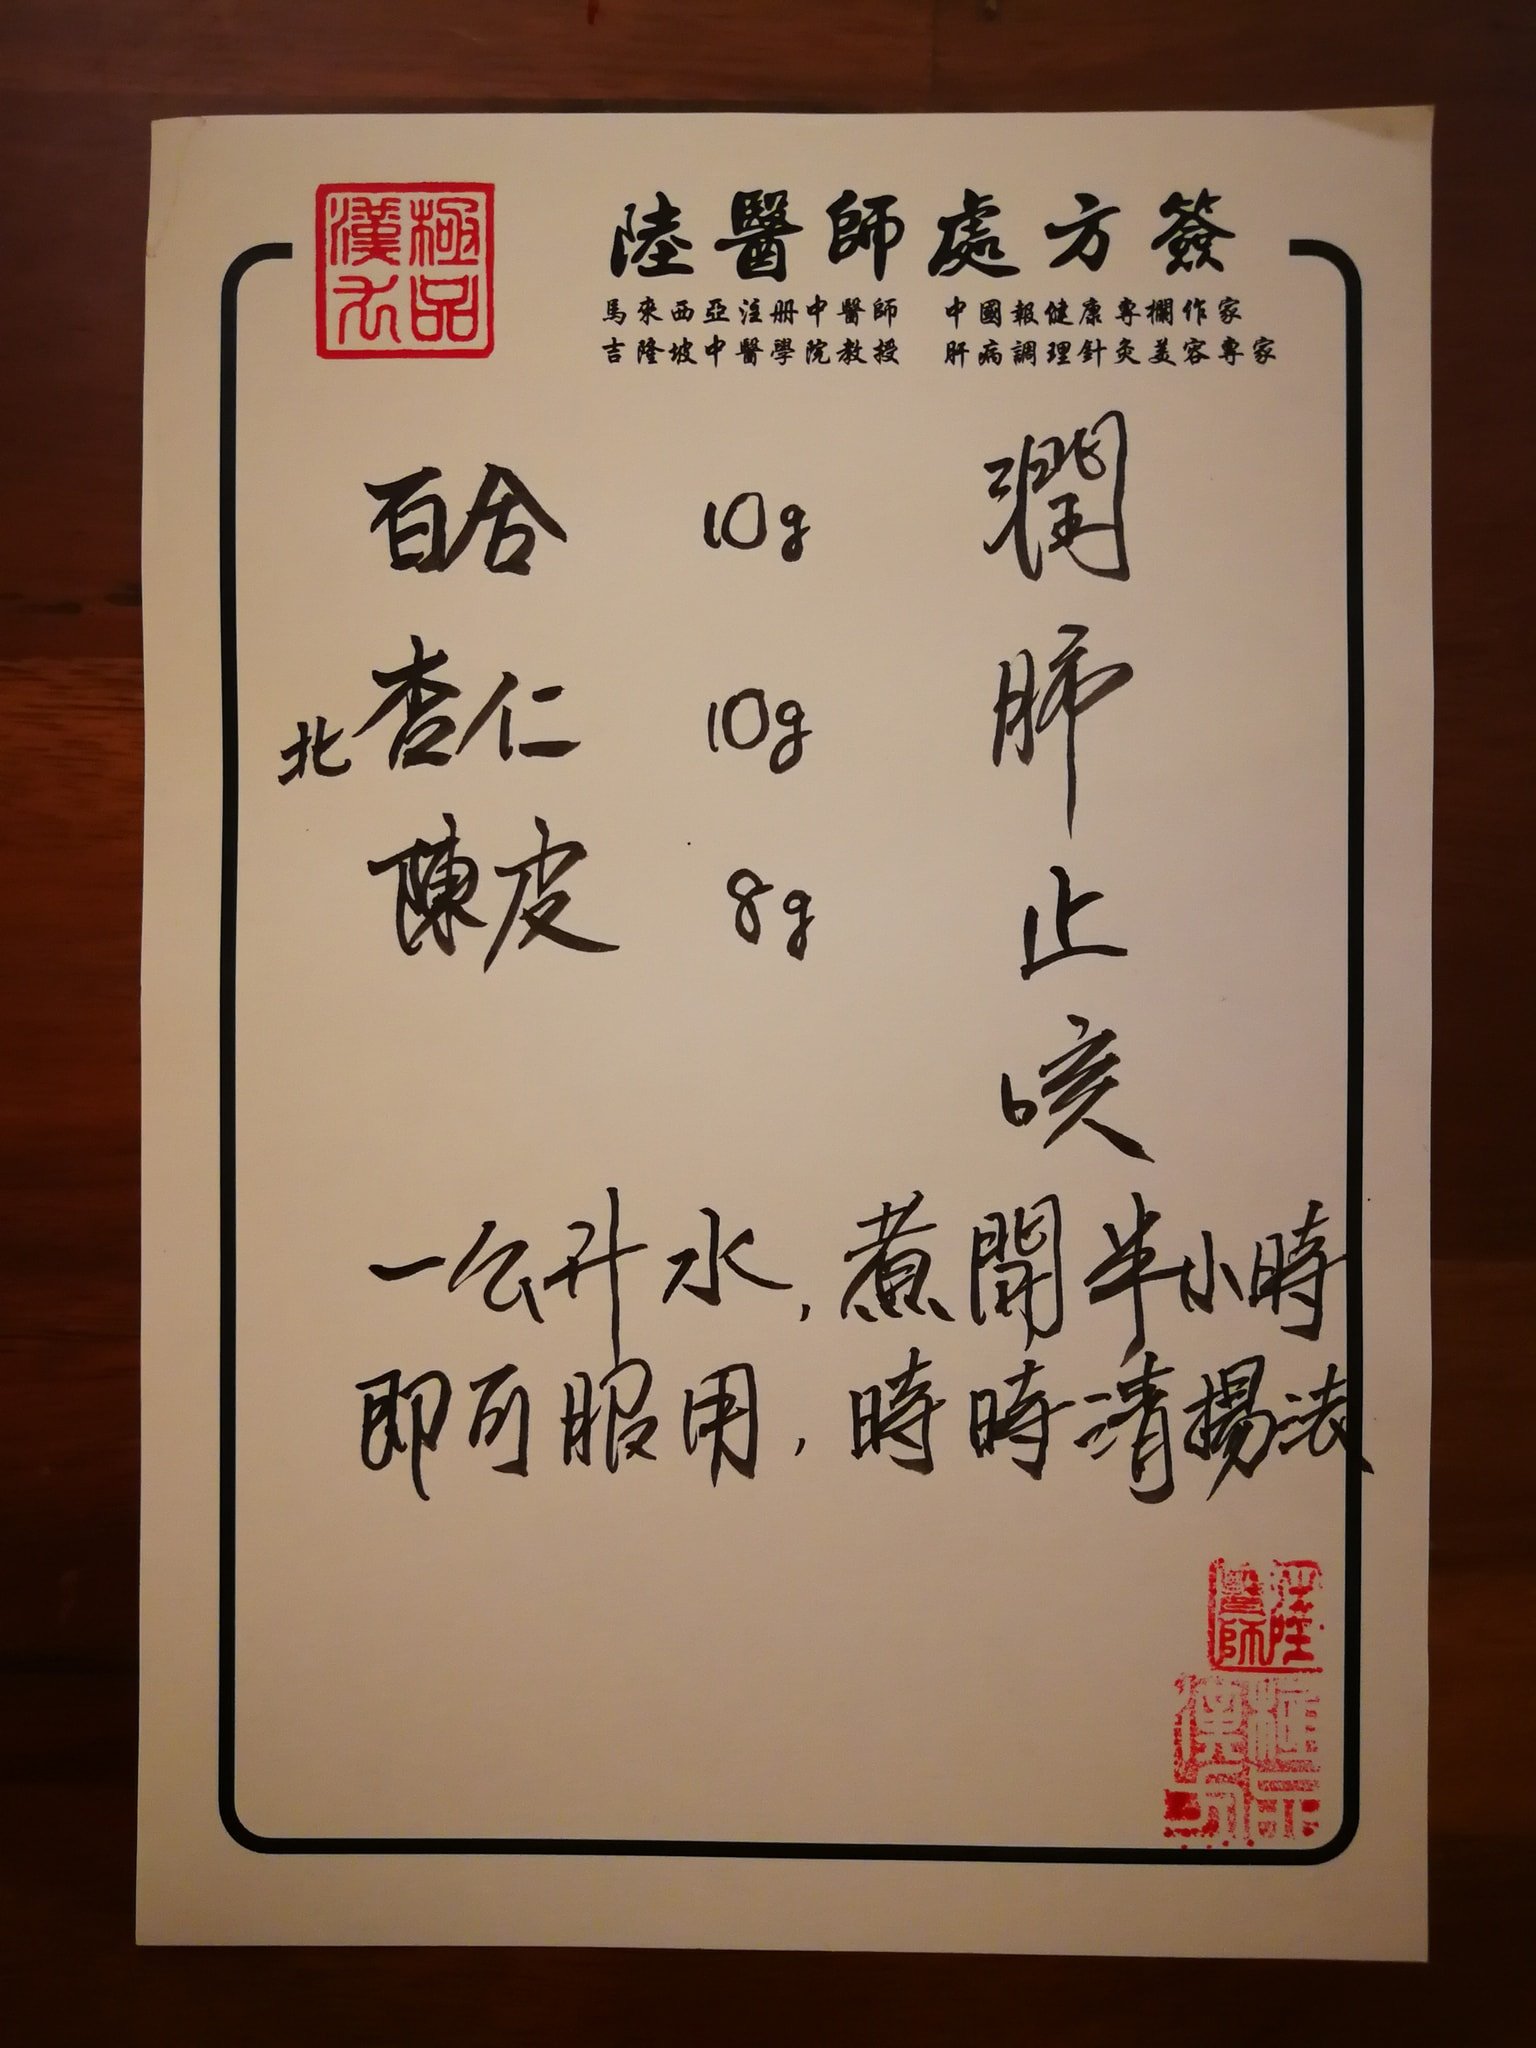 極品
漢方
陸醫師處方簽
馬來西亞注册中醫師 中國報健康專欄作家
吉隆坡中醫學院教授 肝病調理針灸美容專家
潤肺止咳
百合 10g
北杏仁 10g
陳皮 8g
一公升水，煮開半小時
即可服用，時時清揚法
陸
醫師